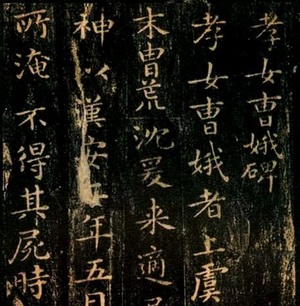 孝女曹娥碑
孝女曹娥者上虞
末冑荒沈爰来適
神以漢安二年五月
所淹不得其屍時